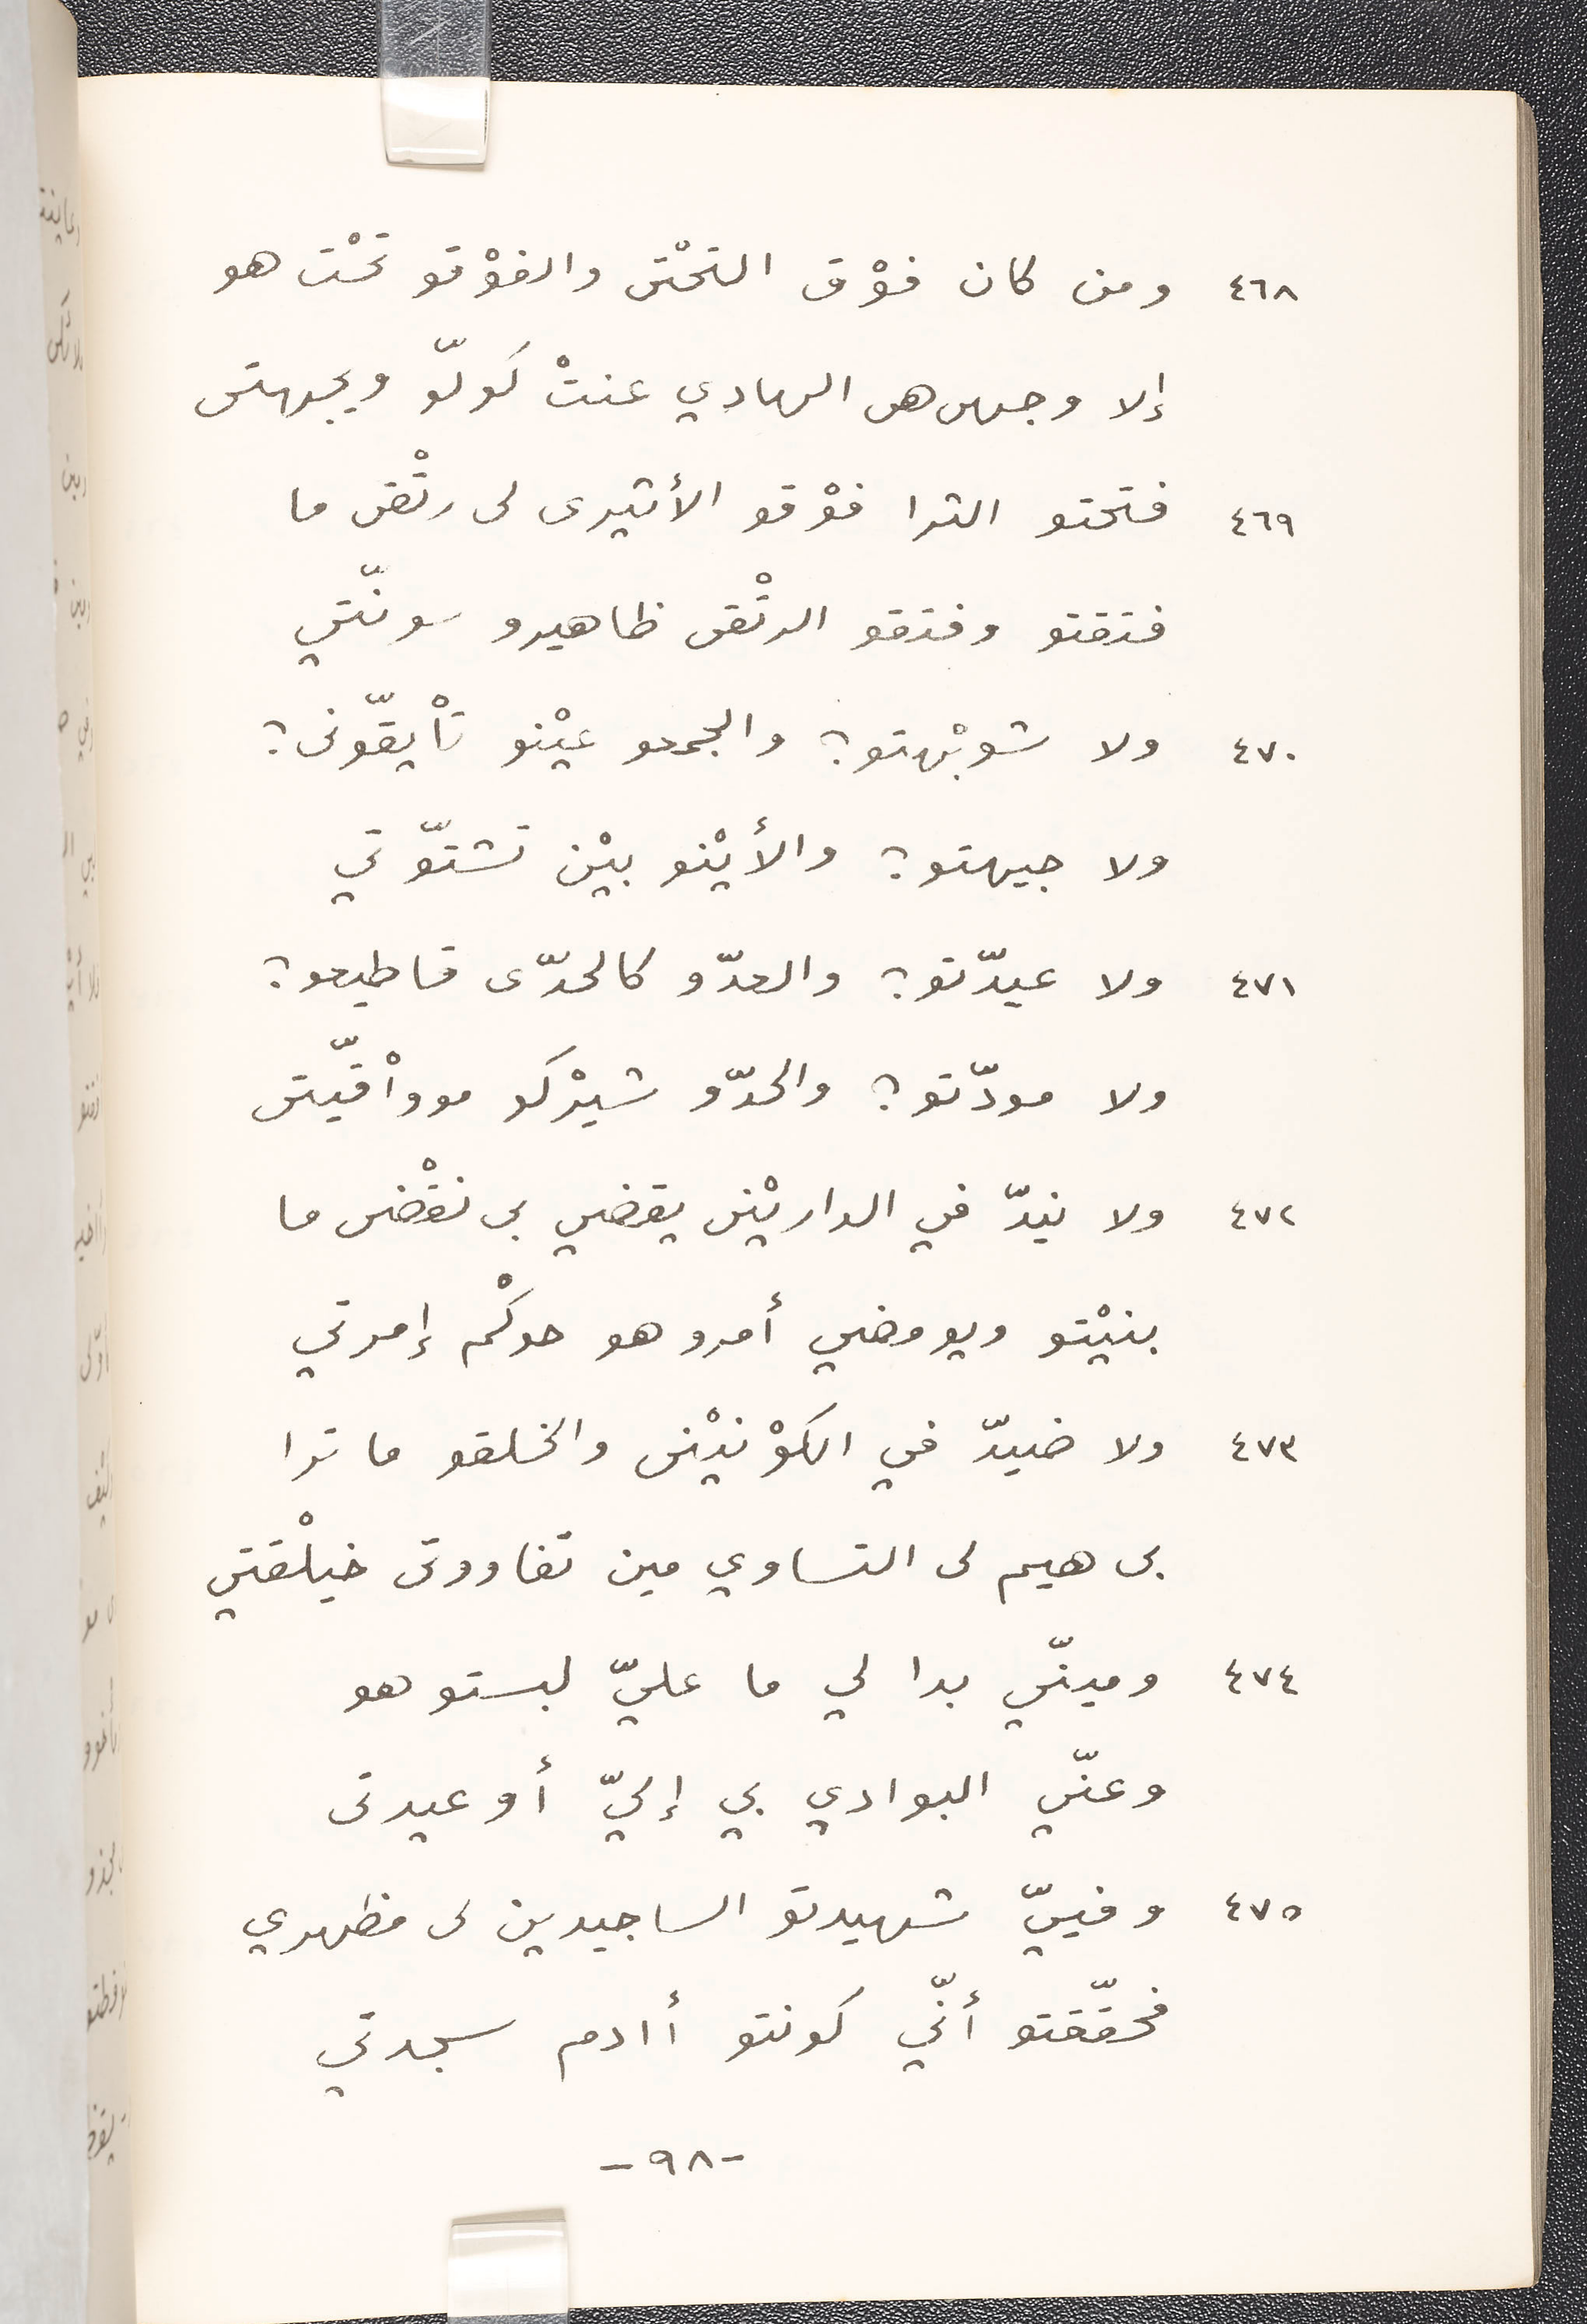 ٤٦٨ ومن كان فوْق التحْتى والفوْقو تحْت هو
إلا وجهى هى الهادي عنتْ كولّو ويجهتى
٤٦٩ فتحتو الترا فوْقو الأتيرى لى رتْقى ما
فتقتو وفتقو الرتْقى ظاهيرو سونّتي
٤٧٠ ولا شوبْهتو؟ والجمعو عيْنو تأْيقّونى؟
ولا جيهتو؟ والأيْنو بيْن تشتّوتي
٤٧١ ولا عيدّتو؟ والعدّو كالحدّى قاطيعو؟
ولا مودّتو؟ والحدّو شيرْكو مووأْقّيتى
٤٧٢ ولا نيدّ في الداريْنى يقضي بى نقْضى ما
بنيْتو ويومضي أمرو هو حوكْم إمرتي
٤٧٣ ولا ضيدّ في الكوْنيْنى والخلقو ما ترا
بى هيم لى التساوي مين تفاووتى خيلْقتي
٤٧٤ ومينّي بدا لي ما عليّ لبستو هو
وعنّي البوادي بي إليّ أوعيدتى
٤٧٥ وفييّ شهيدتو الساجيدين لى مظهري
فحقّقتو أنّي كونتو أادم سجدتي
-٩٨-